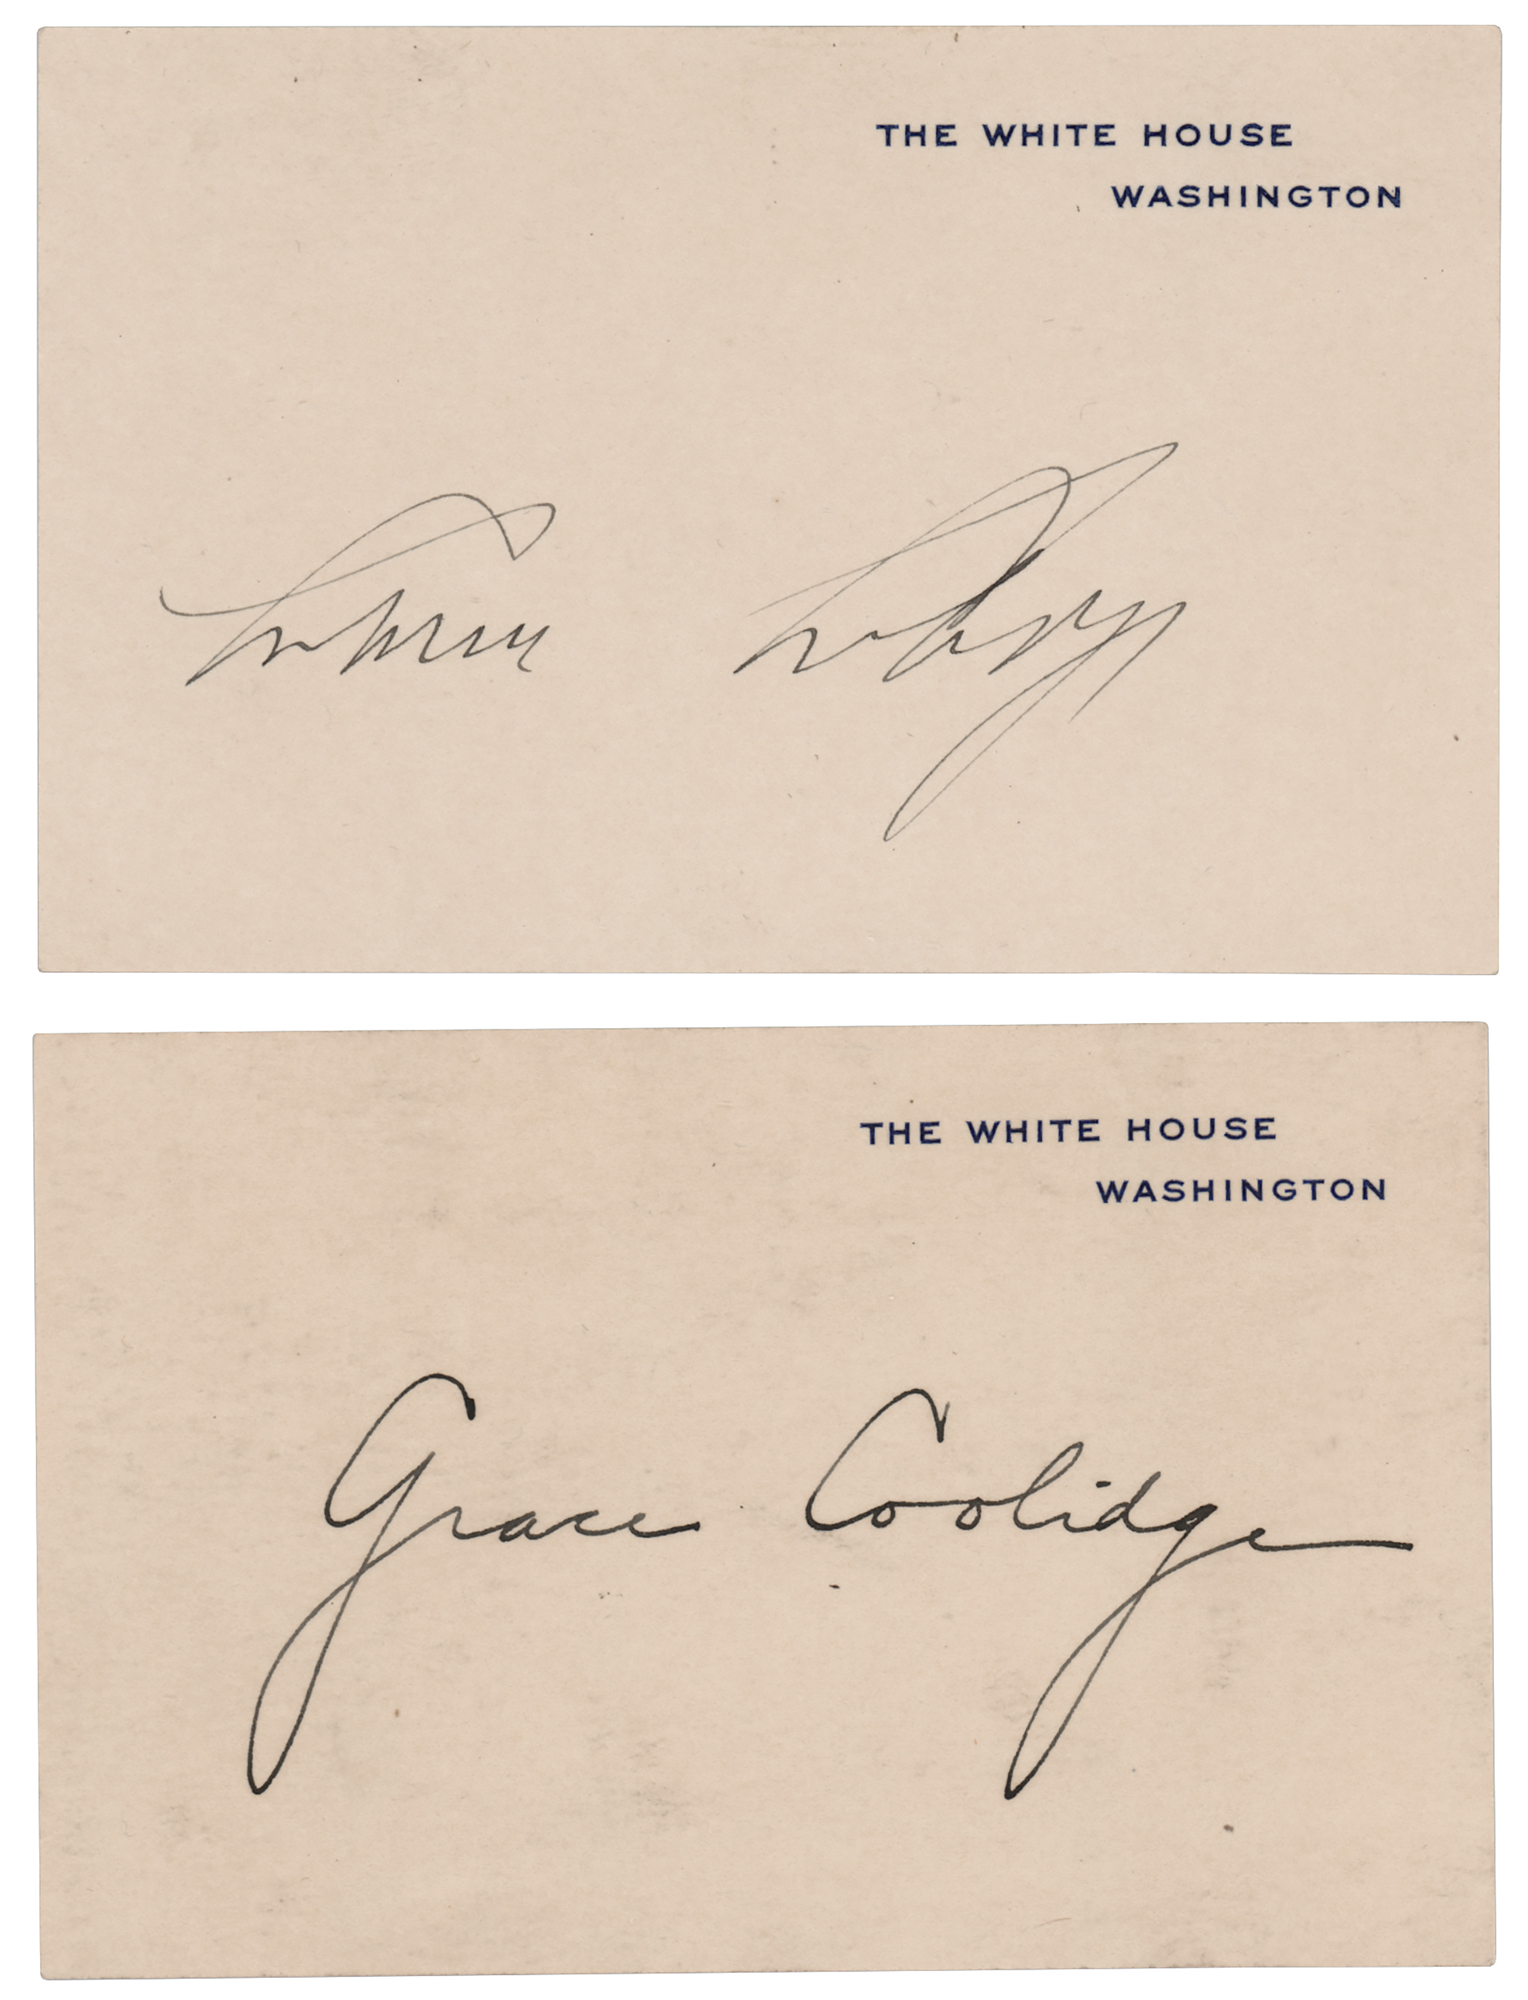 THE WHITE HOUSE
WASHINGTON
Calvin Coolidge
THE WHITE HOUSE
WASHINGTON
Grace Coolidge